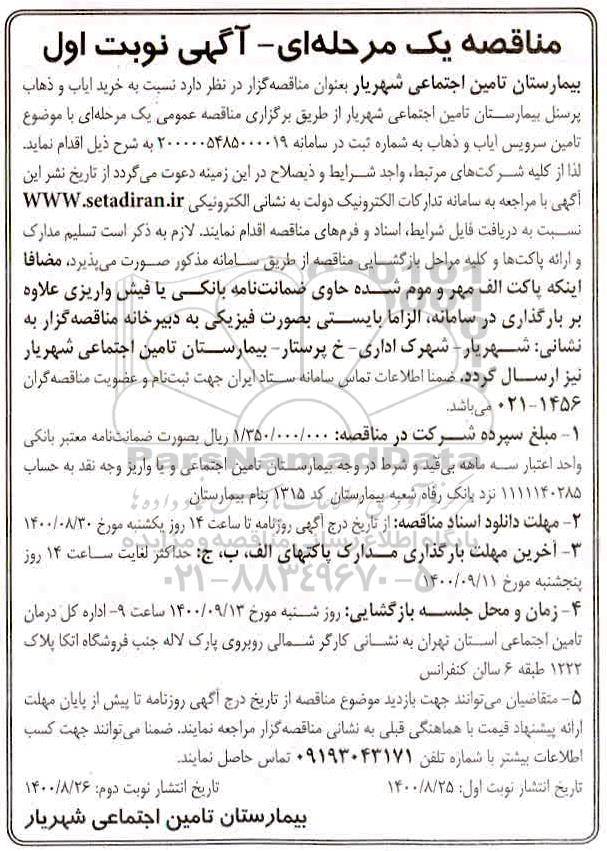 مناقصه یک مرحله‌ای- آگهی نوبت اول
بیمارستان تامین اجتماعی شهریار بعنوان مناقصه‌گزار در نظر دارد نسبت به خرید ایاب و ذهاب
پرسنل بیمارستان تامین اجتماعی شهریار از طریق برگزاری مناقصه عمومی یک مرحله‌ای با موضوع
تامین سرویس ایاب و ذهاب به شماره ثبت در سامانه ۲۰۰۰۰۰۵۴۸۵۰۰۰۰۱۹ به شرح ذیل اقدام نماید.
لذا از کلیه شرکت‌های مرتبط، واجد شرایط و ذیصلاح در این زمینه دعوت می‌گردد از تاریخ نشر این
آگهی با مراجعه به سامانه تدارکات الکترونیک دولت به نشانی الکترونیکی WWW.setadiran.ir
نسبت به دریافت فایل شرایط، اسناد و فرم‌های مناقصه اقدام نمایند. لازم به ذکر است تسلیم مدارک
و ارائه پاکت‌ها و کلیه مراحل بازگشایی مناقصه از طریق سامانه مذکور صورت می‌پذیرد، مضافا
اینکه پاکت الف مهر و موم شده حاوی ضمانت‌نامه بانکی یا فیش واریزی علاوه
بر بارگذاری در سامانه، الزاما بایستی بصورت فیزیکی به دبیرخانه مناقصه‌گزار به
نشانی: شهریار- شهرک اداری- خ پرستار- بیمارستان تامین اجتماعی شهریار
نیز ارسال گردد. ضمنا اطلاعات تماس سامانه ستاد ایران جهت ثبت‌نام و عضویت مناقصه‌گران
۰۲۱-۱۴۵۶ می‌باشد.
۱- مبلغ سپرده شرکت در مناقصه: ۱/۳۵۰/۰۰۰/۰۰۰ ریال بصورت ضمانت‌نامه معتبر بانکی
واجد اعتبار سه ماهه بی‌قید و شرط در وجه بیمارستان تامین اجتماعی و یا واریز وجه نقد به حساب
۱۱۱۱۱۴۰۲۸۵ نزد بانک رفاه شعبه بیمارستان کد ۱۳۱۵ بنام بیمارستان
۲- مهلت دانلود اسناد مناقصه: از تاریخ درج آگهی روزنامه تا ساعت ۱۴ روز یکشنبه مورخ ۱۴۰۰/۰۸/۳۰
۳- آخرین مهلت بارگذاری مدارک پاکتهای الف، ب، ج: حداکثر لغایت ساعت ۱۴ روز
پنجشنبه مورخ ۱۴۰۰/۰۹/۱۱
۴- زمان و محل جلسه بازگشایی: روز شنبه مورخ ۱۴۰۰/۰۹/۱۳ ساعت ۹- اداره کل درمان
تامین اجتماعی استان تهران به نشانی کارگر شمالی روبروی پارک لاله جنب فروشگاه اتکا پلاک
۱۲۲۲ طبقه ۶ سالن کنفرانس
۵- متقاضیان می‌توانند جهت بازدید موضوع مناقصه از تاریخ درج آگهی روزنامه تا پیش از پایان مهلت
ارائه پیشنهاد قیمت با هماهنگی قبلی به نشانی مناقصه‌گزار مراجعه نمایند. ضمنا می‌توانند جهت کسب
اطلاعات بیشتر با شماره تلفن ۰۹۱۹۳۰۴۳۱۷۱ تماس حاصل نمایند.
تاریخ انتشار نوبت اول: ۱۴۰۰/۸/۲۵ تاریخ انتشار نوبت دوم: ۱۴۰۰/۸/۲۶
بیمارستان تامین اجتماعی شهریار
ParsNamadData
پایگاه اطلاع رسانی مناقصه و مزایده
۰۲۱-۸۸۳۴۹۶۷۰-۵